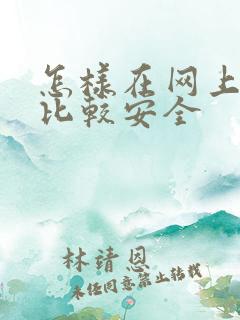 怎样在网上
比较安全
林靖恩
未经同意禁止转载